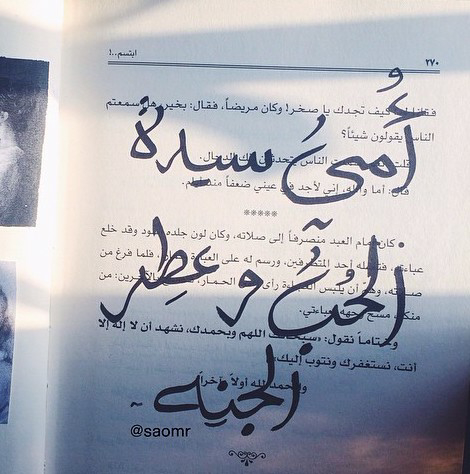 ٢٧٠ ابتسم..!
كيف تجدك يا صخر! وكان مريضاً، فقال: بخير، هل سمعتم
الناس يقولون شيئاً؟
الناس يتحدثون الدجال.
قال: أما والله، إني لأجد في عيني ضعفاً
*****
كان إمام العبد منصرفاً إلى صلاته، وكان لون جلده أسود وقد خلع
عباءته، أحد المتطرفين، ورسم له على العباءة فلما فرغ من
صلاته، وهم أن يلبس العباءة رأى الحمار، الآخرين: من
منكم مسح وجهه بعباءتي.
وختاماً نقول: «سبحانك اللهم وبحمدك، نشهد أن لا إله إلا
أنت، نستغفرك ونتوب إليك»
والحمد لله أولاً وآخراً
أُمي سيدة
الحُب وعِطر
الجنه ~
@saomr